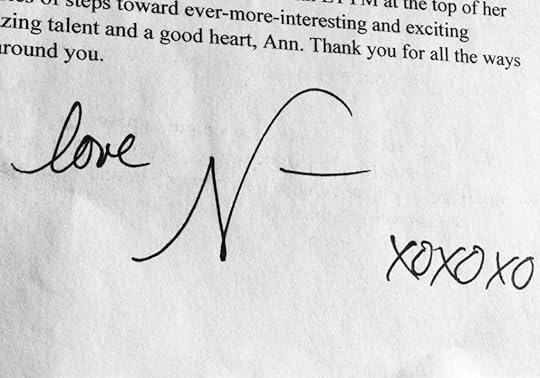 of steps toward ever-more-interesting and exciting at the top of her
zing talent and a good heart, Ann. Thank you for all the ways
around you.
love N
xoxoxo